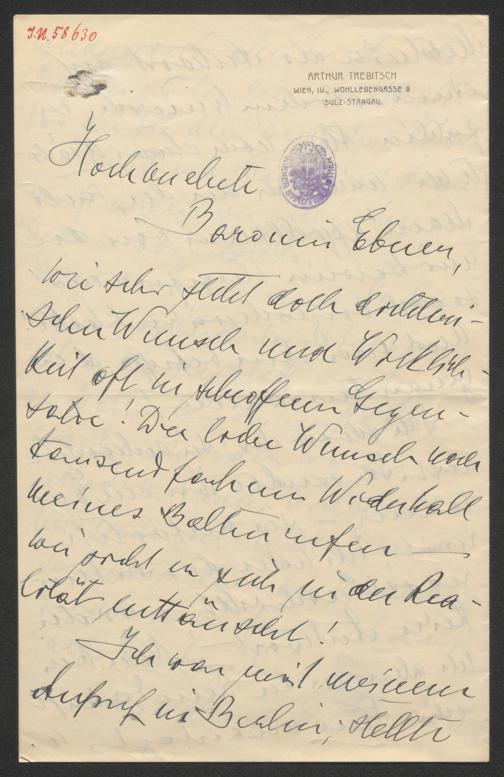 I.N. 58630
ARTHUR TREBITSCH
WIEN, IV., WOHLLEBENGASSE 8
SULZ-STANGAU.
Hochverehrte
Baronin Ebner,
wie sehr steht doch
schen Wunsch und Wirklich-
keit oft in schroffem Gegen-
satze! Der Wunsch nach
tausendfachem Widerhall
meines
wie sich in der Rea-
lität enttäuscht!
Ich war mit meinem
Aufruf in Berlin; stellte